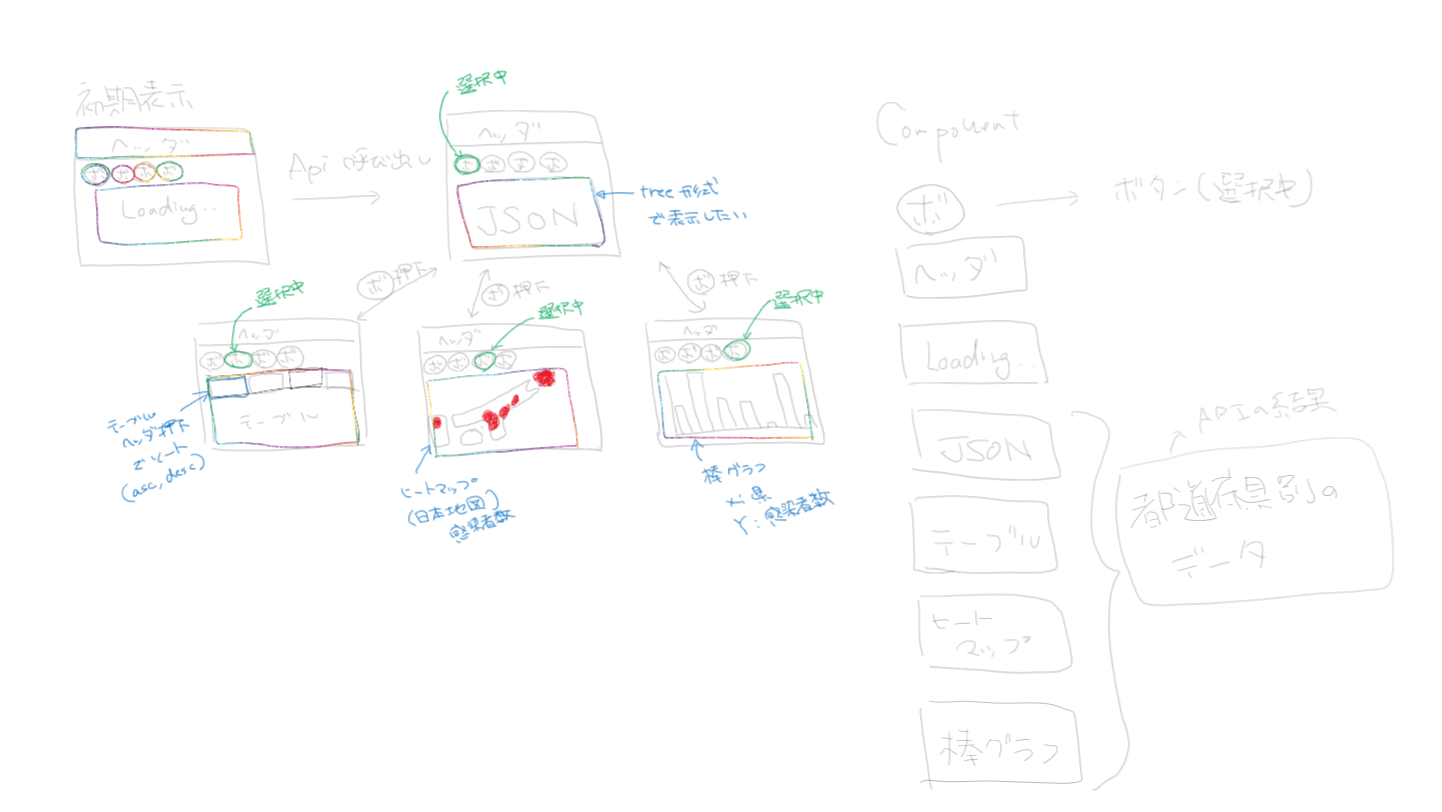 初期表示
ヘッダ
ボ ボ ボ ボ
Loading...
Api 呼び出し
選択中
ヘッダ
ボ ボ ボ ボ
JSON
tree 形式
で表示したい
ボ 押下
ボ 押下
ボ 押下
選択中
ヘッダ
ボ ボ ボ ボ
テーブル
テーブル
ヘッダ押下
でソート
(asc, desc)
選択中
ヘッダ
ボ ボ ボ ボ
ヒートマップ
(日本地図)
感染者数
選択中
ヘッダ
ボ ボ ボ ボ
棒グラフ
X: 県
Y: 感染者数
Component
ボ
ボタン(選択中)
ヘッダ
Loading...
JSON
テーブル
ヒート
マップ
棒グラフ
APIの結果
都道府県別の
データ